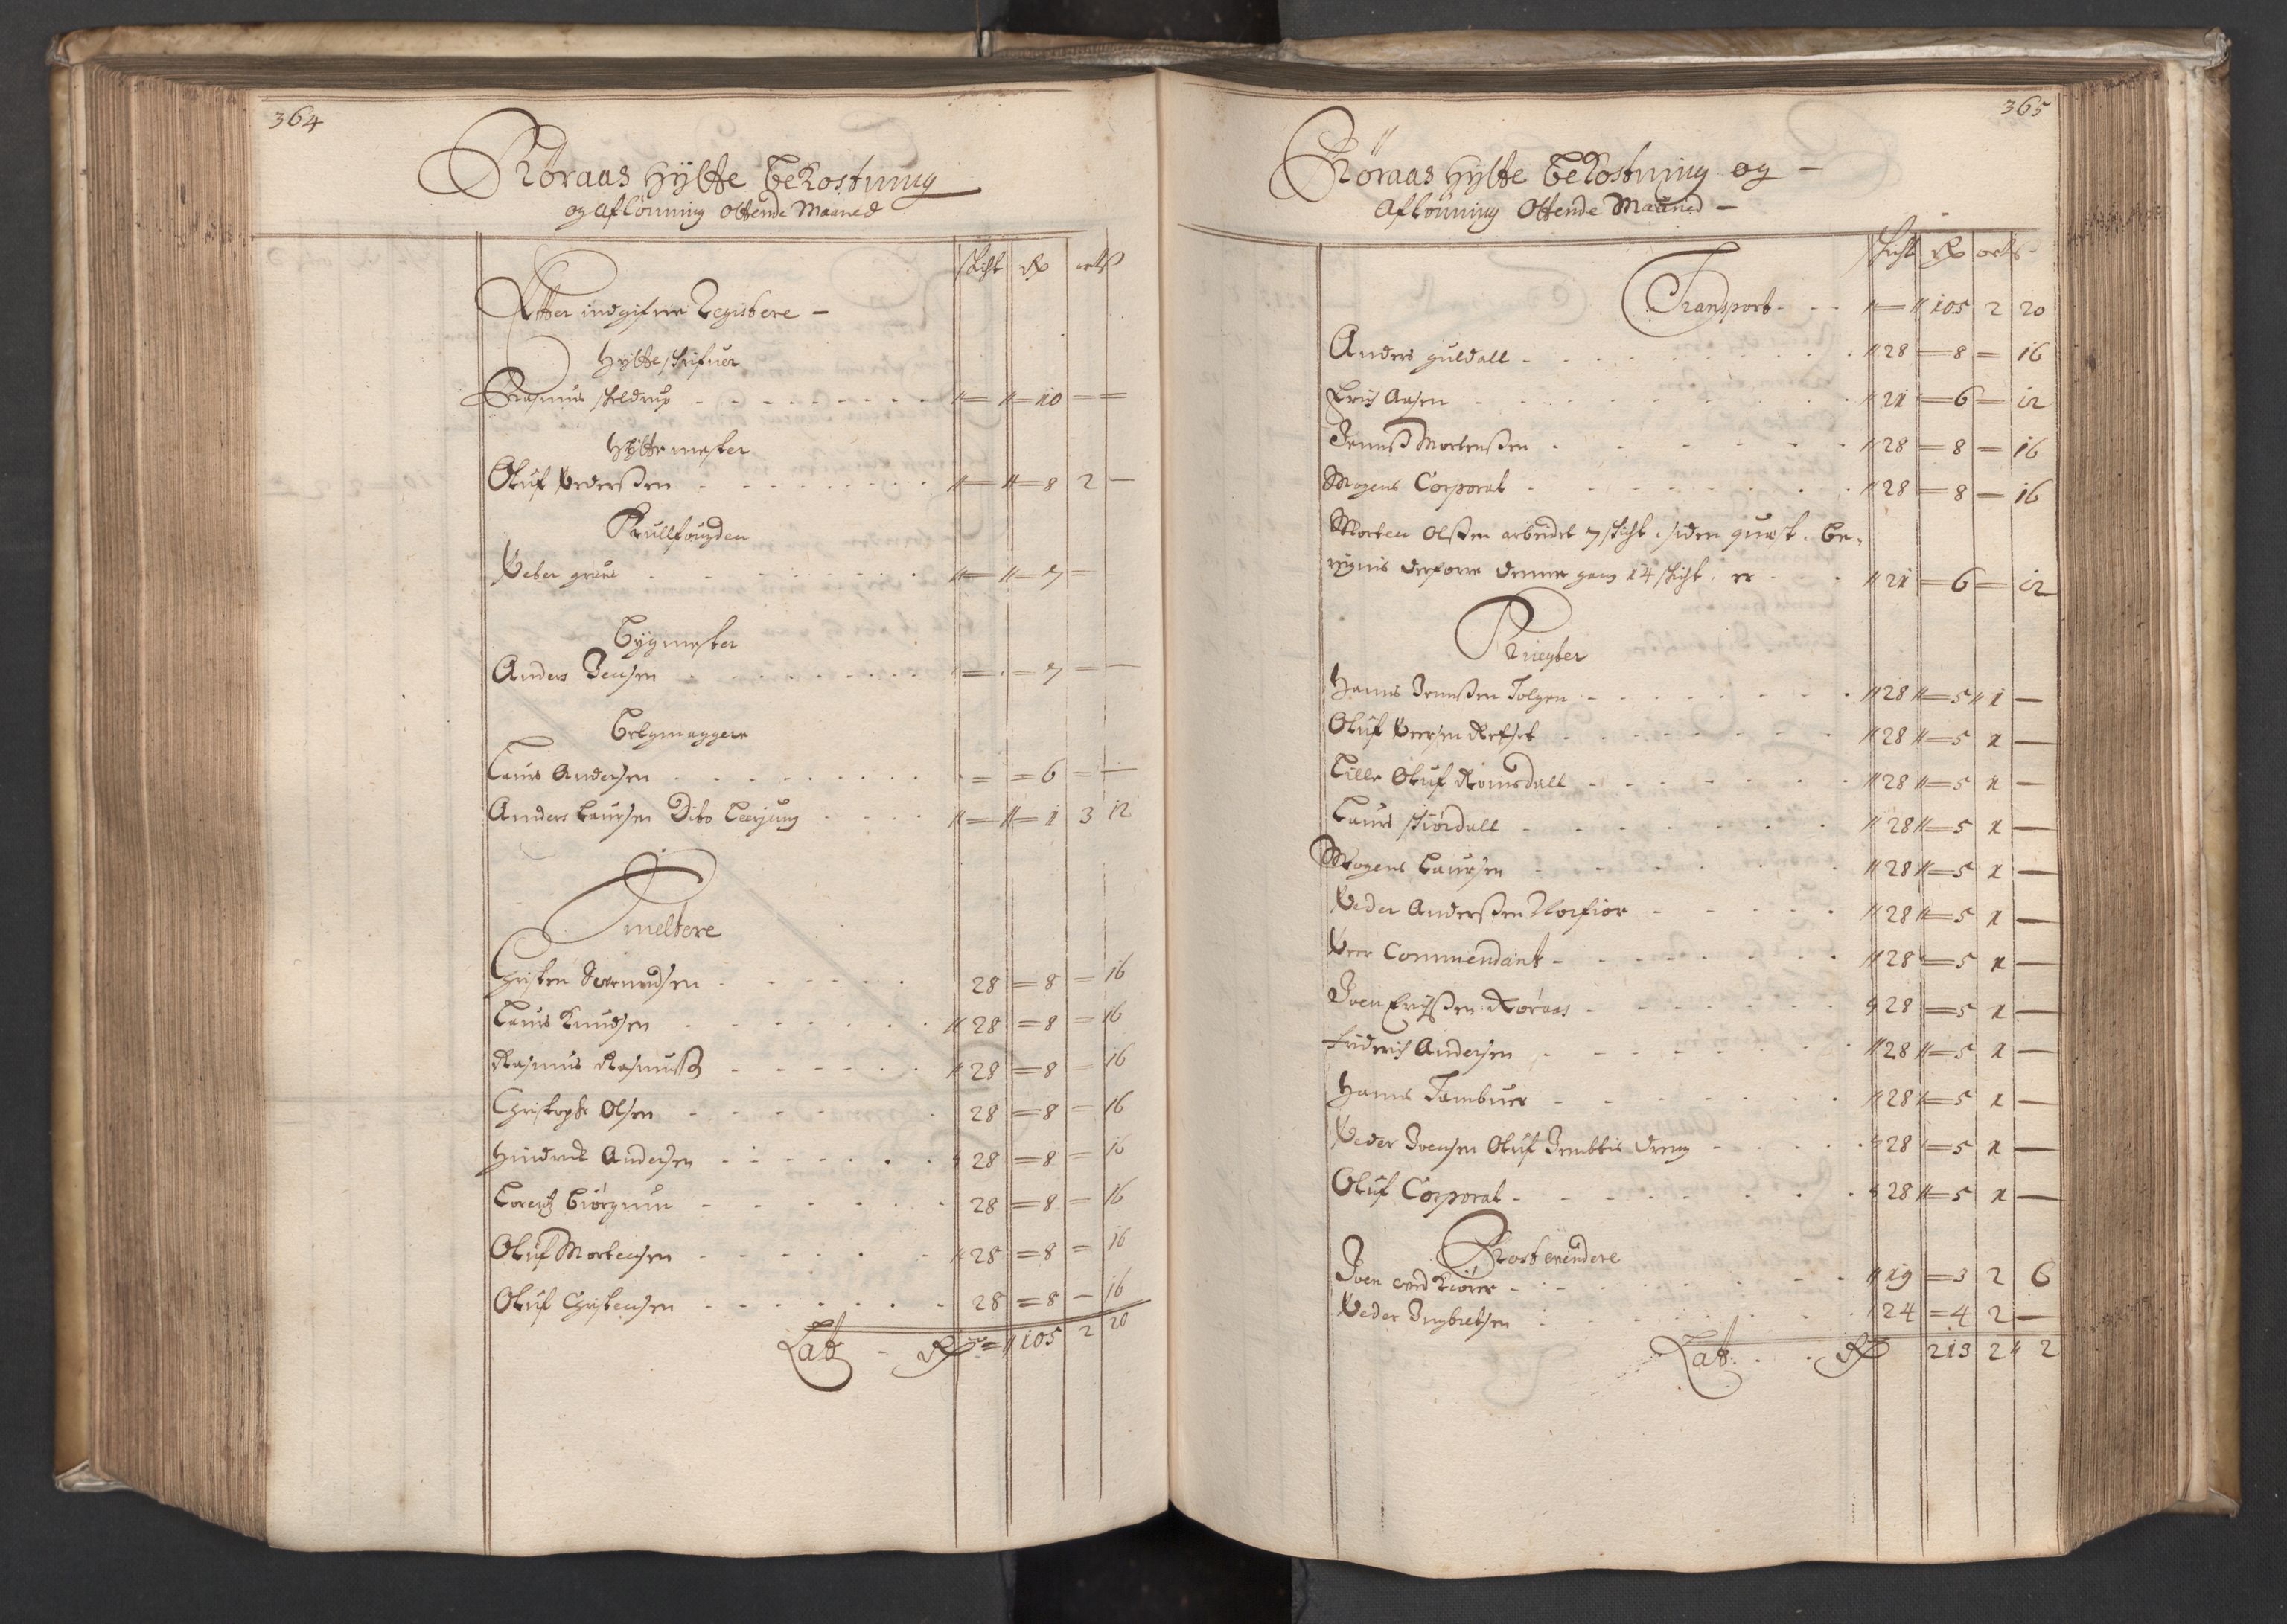 364
Røraas Hÿtte Bekostning
og Aflönning Ottende Maaned
skicht Rdr ortß
Effter indgifne Registere –
Hytteskrifuer
Rasmus skeldrup 10
Hÿttemester
Oluf Pederßen 8 2
Kullfougden
Peter grune 7
Bÿgmester
Anders Jensen 7
Belgmaggere
Laurs Andersen 6
Anders Laursen Dito Leerjung 1 3 12
Smeltere
Christen 28 8 16
Laurs Knudsen 28 8 16
Rasmus Rasmußß 28 8 16
Christopher Olsen 28 8 16
Hindrick Andersen 28 8 16
Lorentz Biörgnun 28 8 16
Oluf Mortensen 28 8 16
Oluf Christensen 28 8 16
Latt Rdr 105 2 20
365
Röraas Hÿtte Bekostning og –
Aflönning Ottende Maaned –
skicht Rdr ortß
Transport 105 2 20
Anders guldall 28 8 16
Erich Aasen 21 6 12
Jenß Mortenßen 28 8 16
Mogens Corporal 28 8 16
Morten Olßen arbeidet 7 skicht siden
denne gang 14 skicht er 21 6 12
Knegter
Hanns Jenßen Tolgen 28 5 1
Oluf Peersen Refset 28 5 1
Lille Oluf Romsdall 28 5 1
Laurs stiördall 28 5 1
Mogens Laursen 28 5 1
Peder Anderßen Norfior 28 5 1
Peer Commendant 28 5 1
Joen Erichßen Röraas 28 5 1
Friderich Andersen 28 5 1
Hanns Tambuer 28 5 1
Peder Joensen Oluf Dreng 28 5 1
Oluf Corporal 28 5 1
Rostvendere
Joen 19 3 2 6
Peder Ingbretsen 24 4 2
Latt Rdr 213 2 2